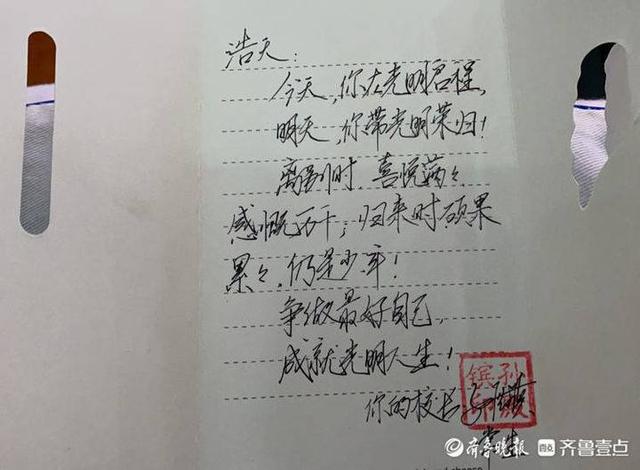 浩天：
今天，你从光明启程，
明天，你带光明荣归！
离别时，喜悦满々
感慨万千；归来时硕果
累々，仍是少年！
争做最好自己，
成就光明人生！
你的校长
齐鲁晚报 齐鲁壹点